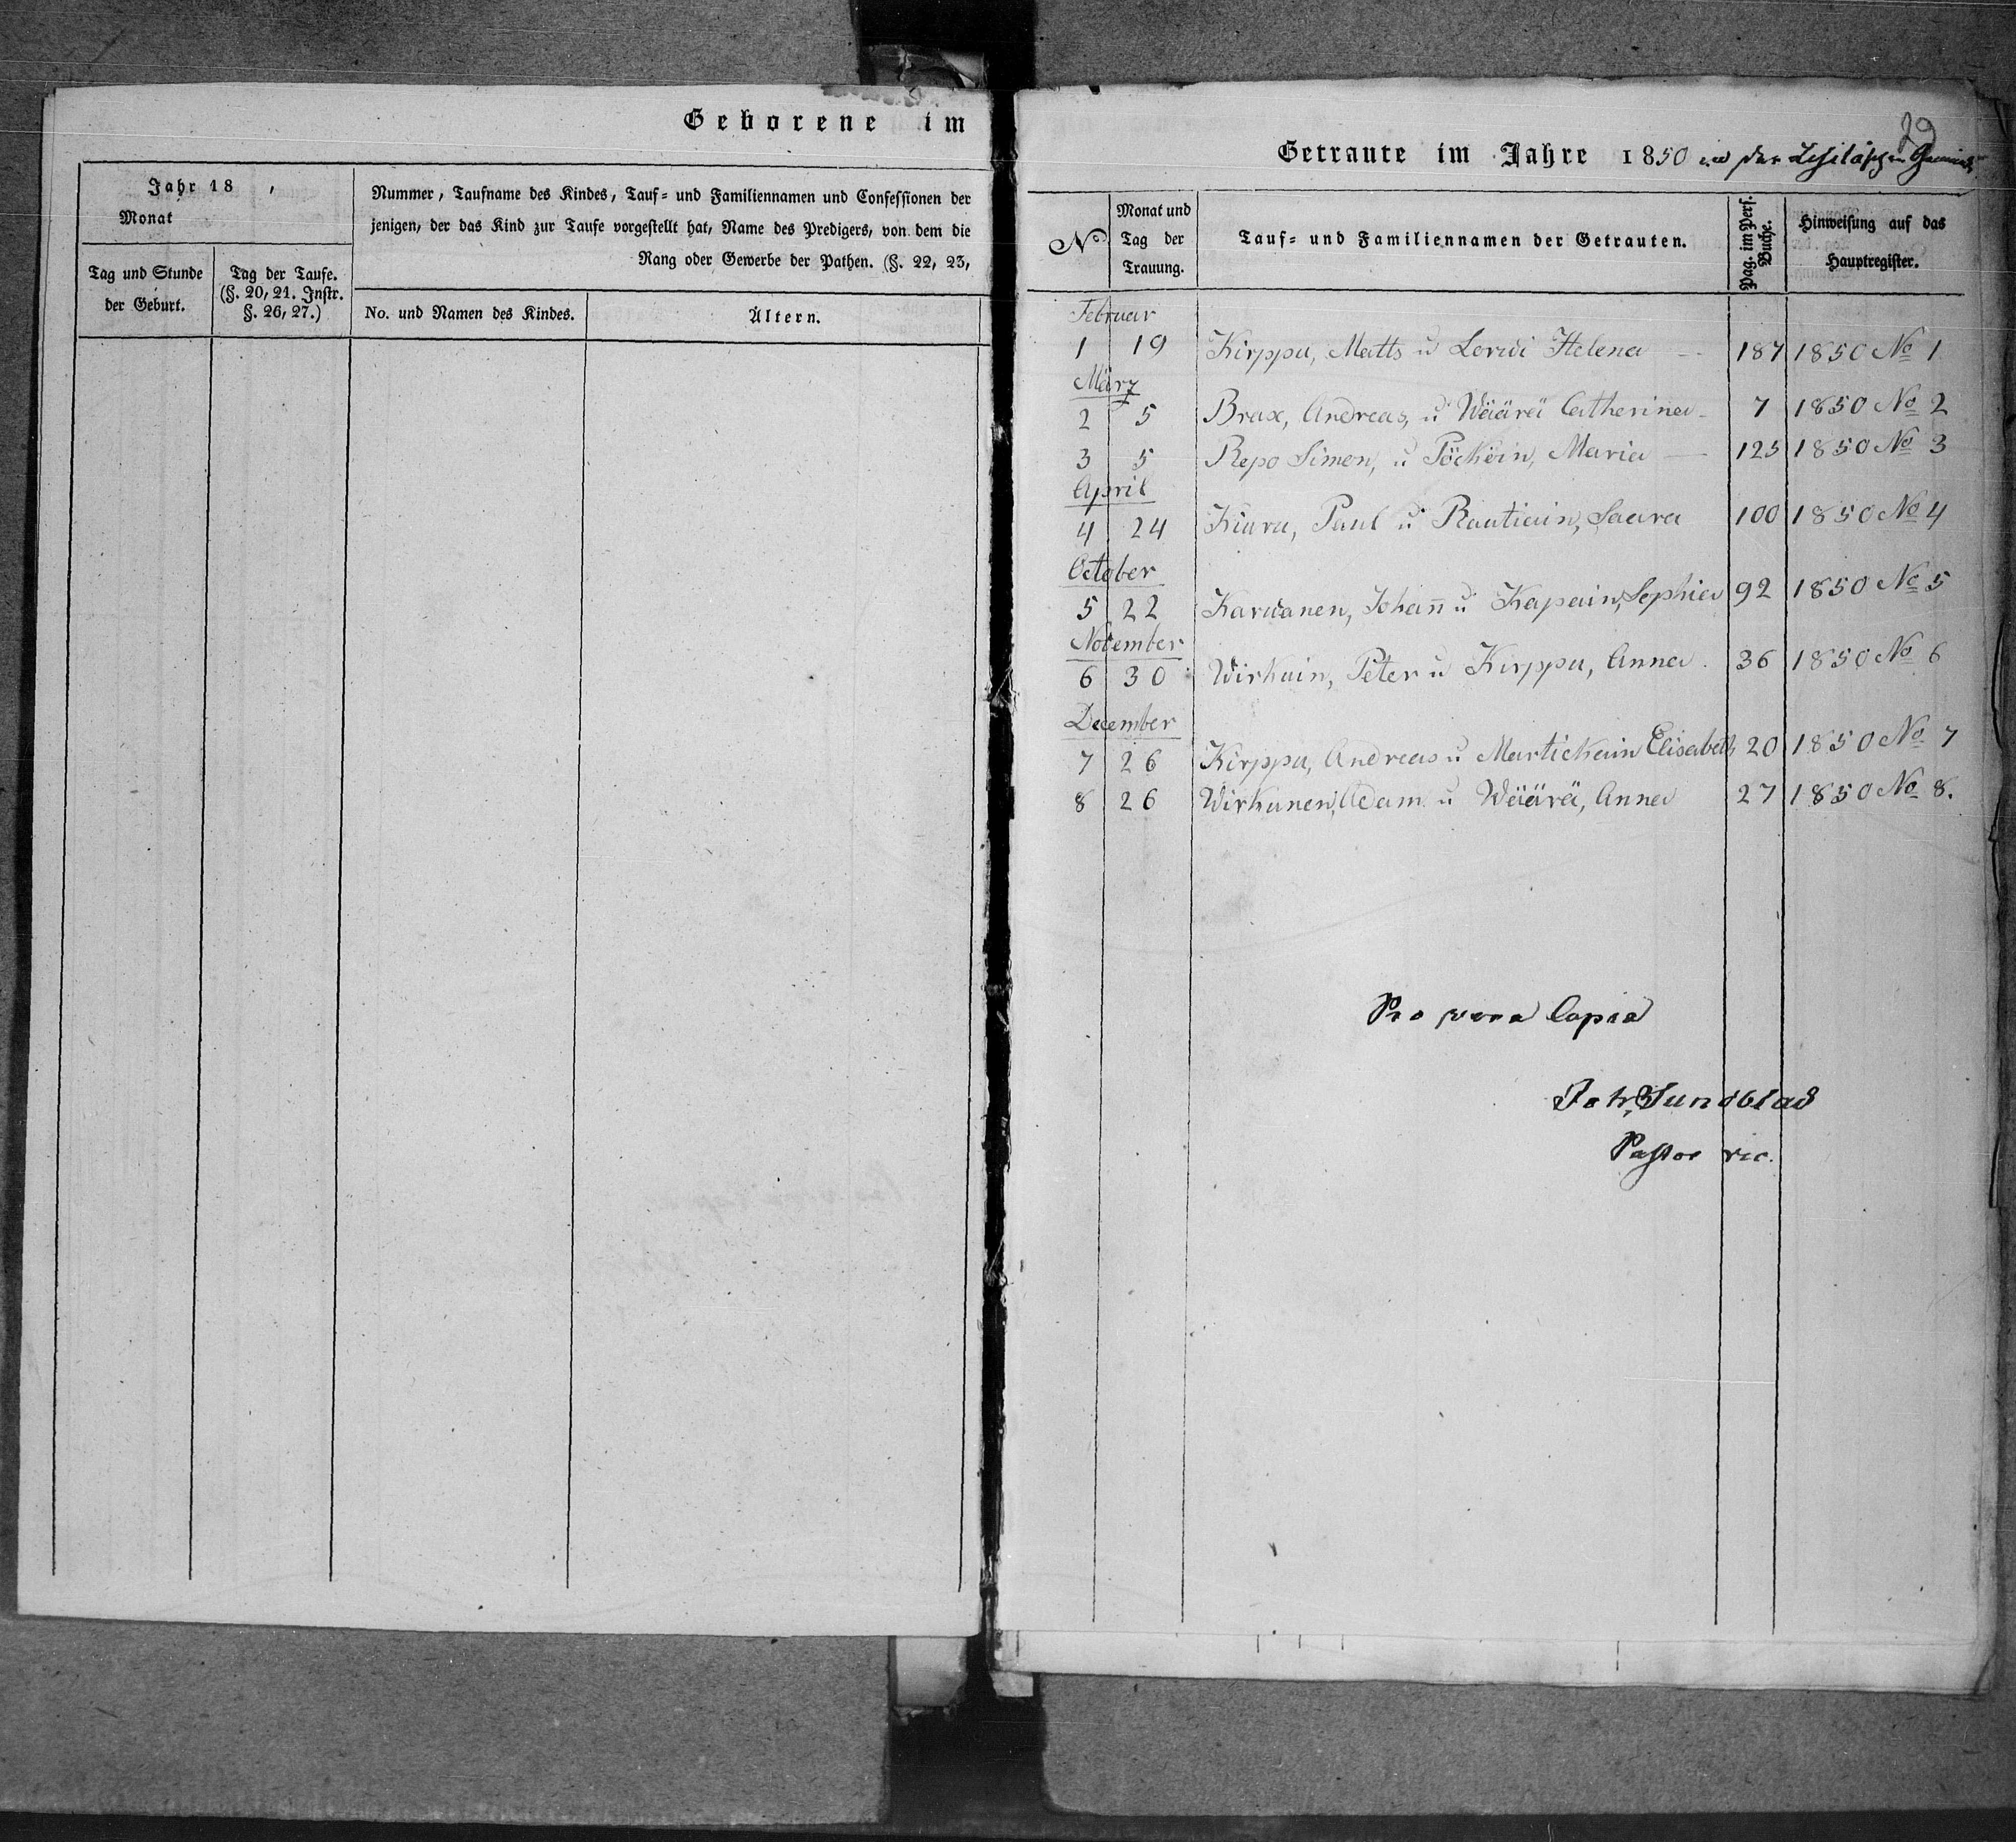 Geborene im
Jahr 18 ,
Monat
Nummer, Taufname des Kindes, Tauf- und Familiennamen und Confessionen der
jenigen, der das Kind zur Taufe vorgestellt hat, Name des Predigers, von dem die
Rang oder Gewerbe der Pathen. (§. 22, 23,
Tag und Stunde
der Geburt.
Tag der Taufe.
(§. 20, 21. Instr.
§. 26, 27.)
No. und Namen des Kindes.
Ältern.
29
Getraute im Jahre 1850 in der
No
Monat und
Tag der
Trauung.
Tauf- und Familiennamen der Getrauten.
Pag. im Pers.
Buche.
Hinweisung auf das
Hauptregister.
Februar
1 19 Kirppu, Matts u Lorvi Helena — 187 1850 No 1
März
2 5 Brax, Andreas, u Wäärä Catherina - 7 1850 No 2
3 5 Repo Simon, u Pöcköin, Maria — 125 1850 No 3
April
4 24 Kiuru, Paul u Rautiain, Saara 100 1850 No 4
October
5 22 Karvanen, Johan̄ u Kapain, Sophia 92 1850 No 5
November
6 30 Wirkuin, Peter u Kirppu, Anna. 36 1850 No 6
December
7 26 Kirppu, Andreas u Martickain Elisabeth 20 1850 No 7
8 26 Wirkunen, Adam u Wäärä, Anna 27 1850 No 8.
Pro vera Copia
Joh. Sundblad
Pastor vic.